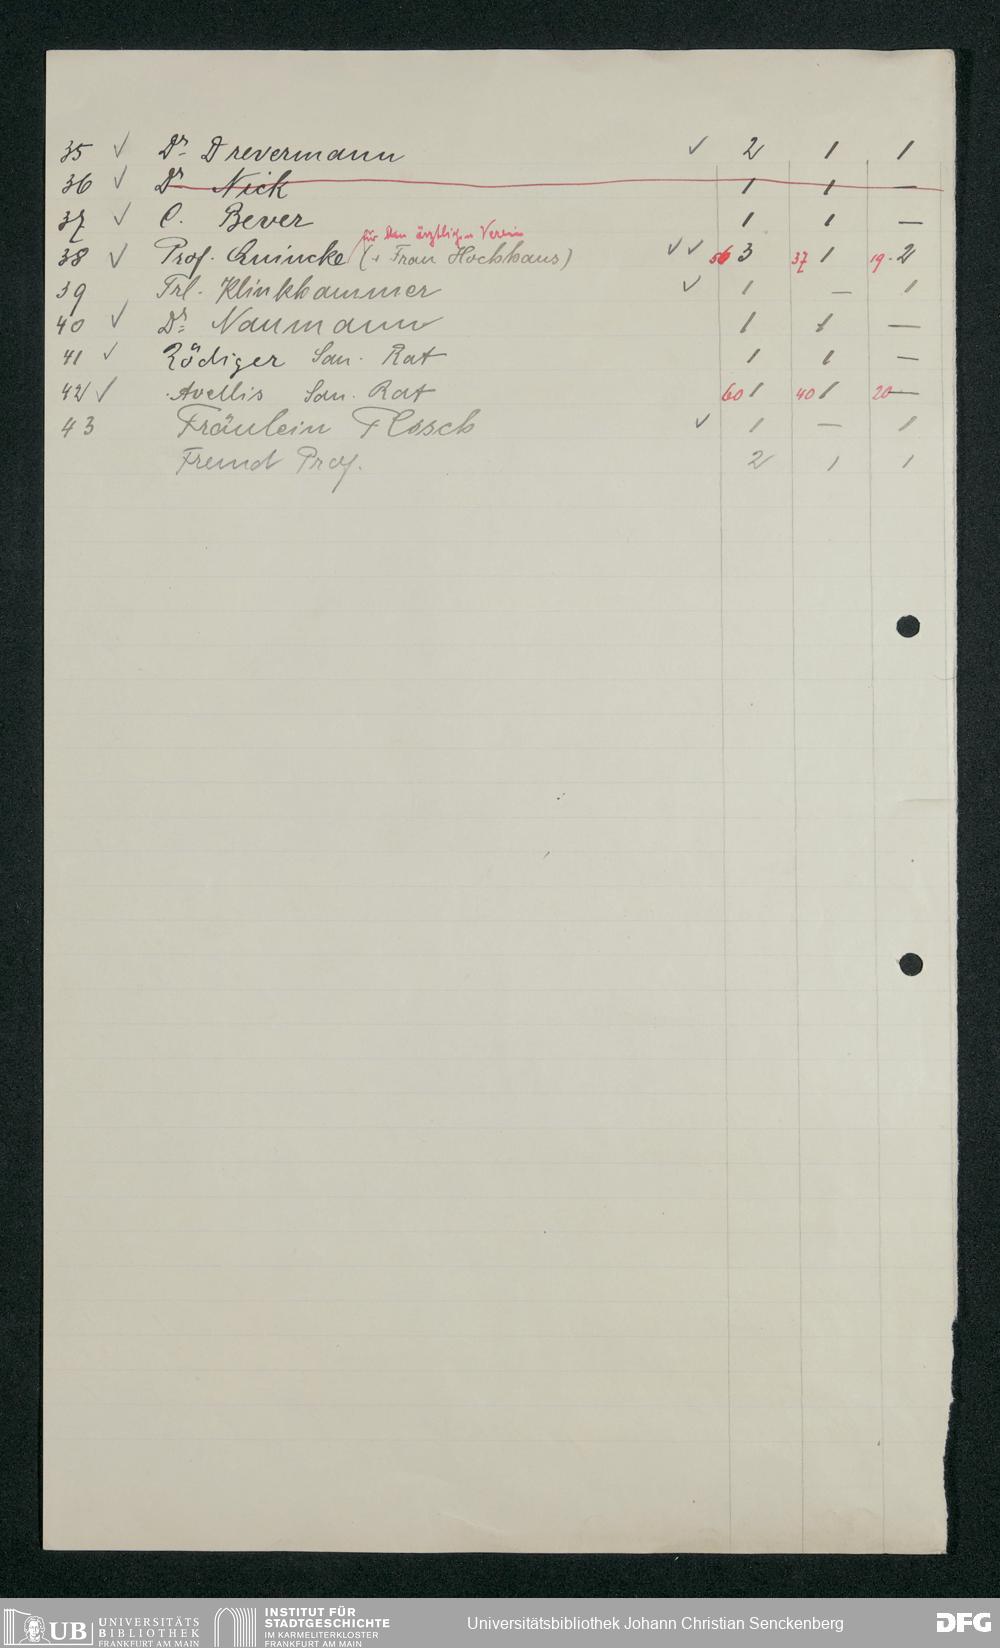 35 ✓ Dr. Drevermann ✓ 2 1 1
36 ✓ Dr. Nick 1 1 —
37 ✓ C. Bever 1 1 —
für den ärztlichen Verein
38 ✓ Prof. Quincke (+ Frau Hochhaus) ✓✓ 56 3 37 1 19. 2
39 Frl. Klinkhammer ✓ 1 — 1
40 ✓ Dr. Naumann 1 1 —
41 ✓ Rödiger San. Rat 1 1 —
42 ✓ Avellis San. Rat 60 1 40 1 20 —
43 Fräulein Flesch ✓ 1 — 1
Freund Prof. 2 1 1
UB UNIVERSITÄTS
BIBLIOTHEK
FRANKFURT AM MAIN
INSTITUT FÜR
STADTGESCHICHTE
IM KARMELITERKLOSTER
FRANKFURT AM MAIN
Universitätsbibliothek Johann Christian Senckenberg
DFG